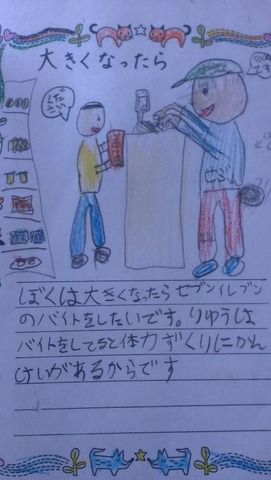 大きくなったら
ぼくは大きくなったらセブンイレブン
のバイトをしたいです。りゆうは
バイトをしてると体力ずくりにかん
けいがあるからです